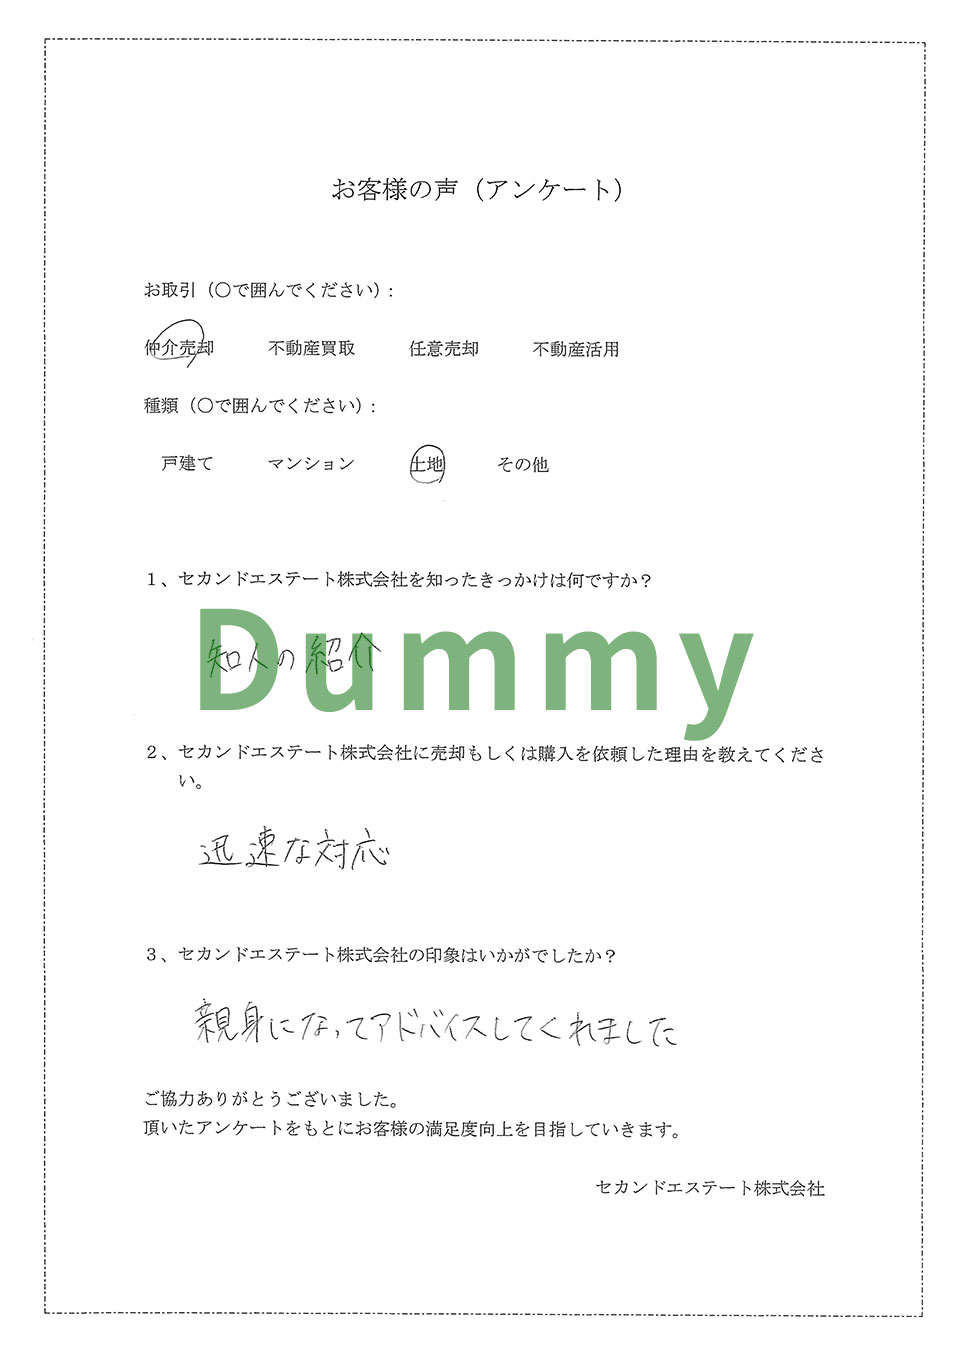 お客様の声（アンケート）
お取引（〇で囲んでください）:
仲介売却 不動産買取 任意売却 不動産活用
種類（〇で囲んでください）:
戸建て マンション 土地 その他
１、セカンドエステート株式会社を知ったきっかけは何ですか？
Dummy
知人の紹介
２、セカンドエステート株式会社に売却もしくは購入を依頼した理由を教えてくださ
い。
迅速な対応
３、セカンドエステート株式会社の印象はいかがでしたか？
親身になってアドバイスしてくれました
ご協力ありがとうございました。
頂いたアンケートをもとにお客様の満足度向上を目指していきます。
セカンドエステート株式会社